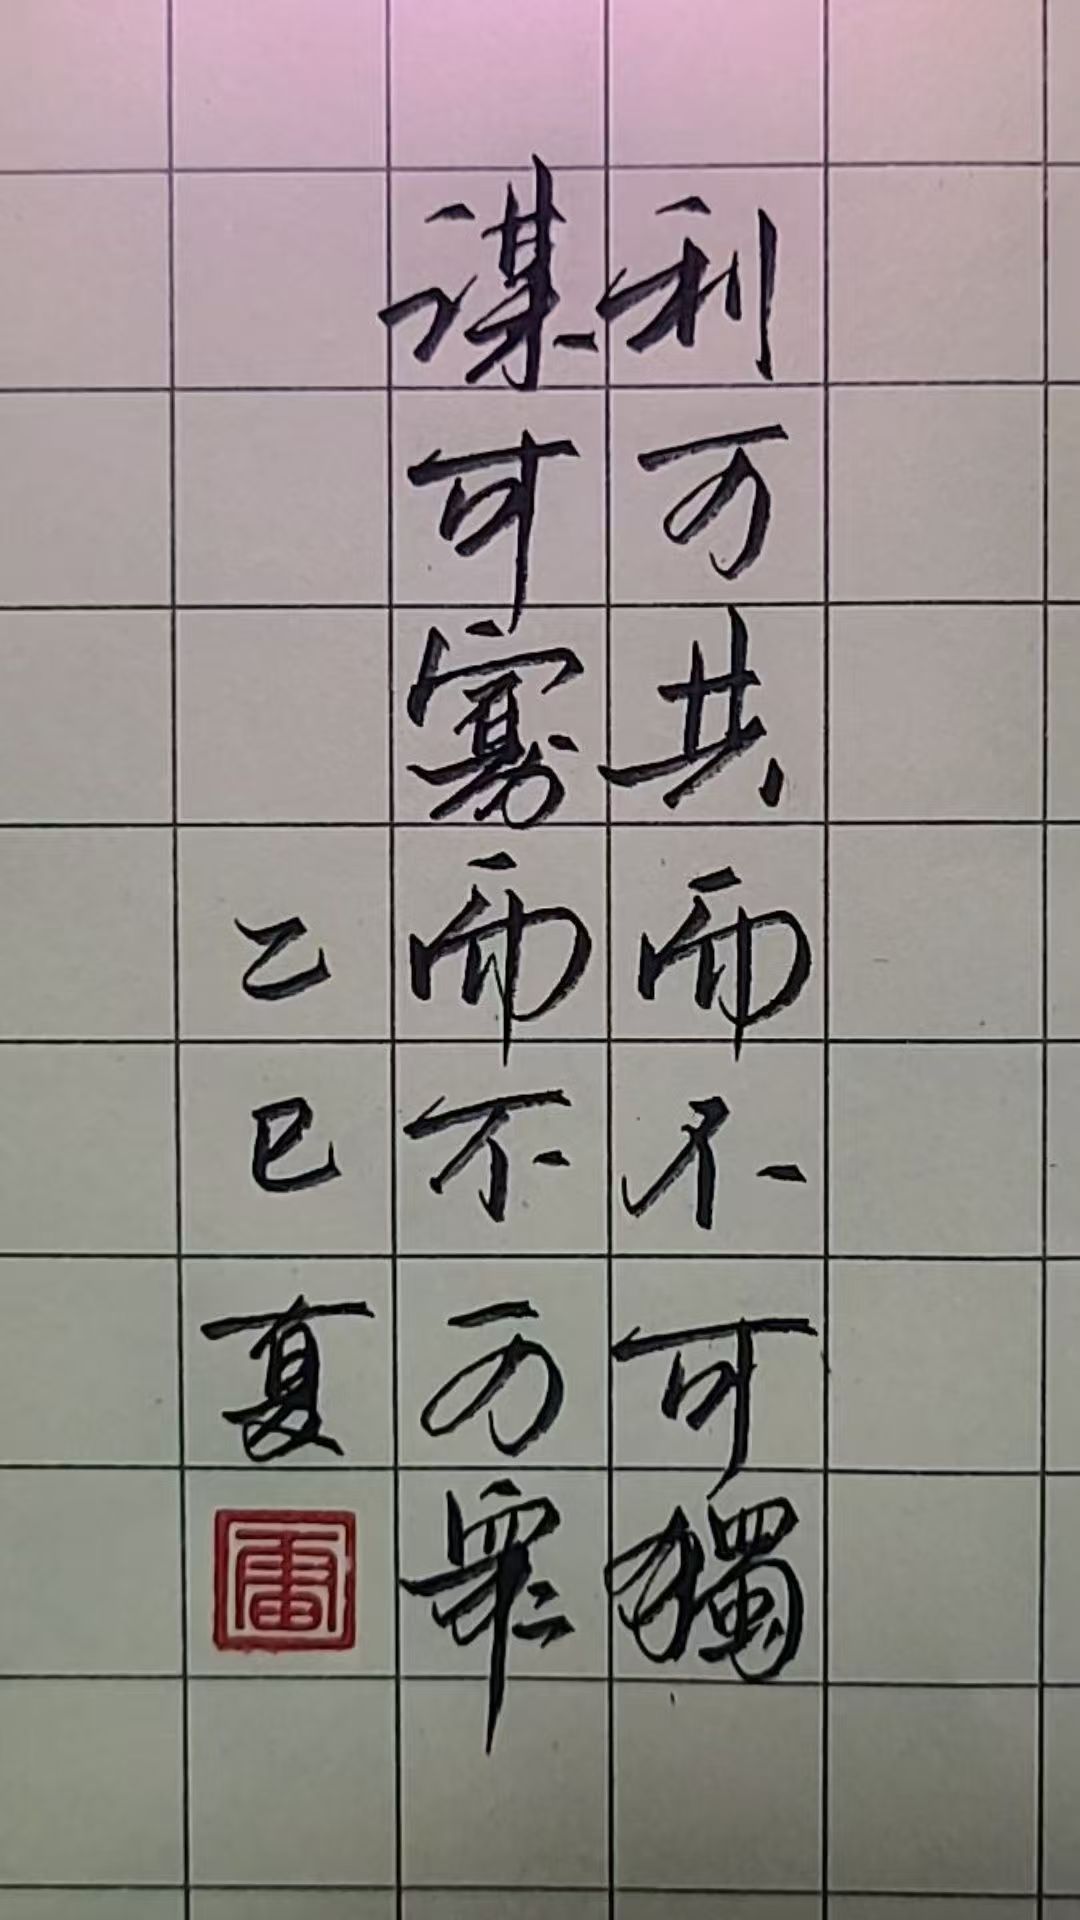 利可共而不可獨
谋可寡而不可眾
乙巳夏
雷